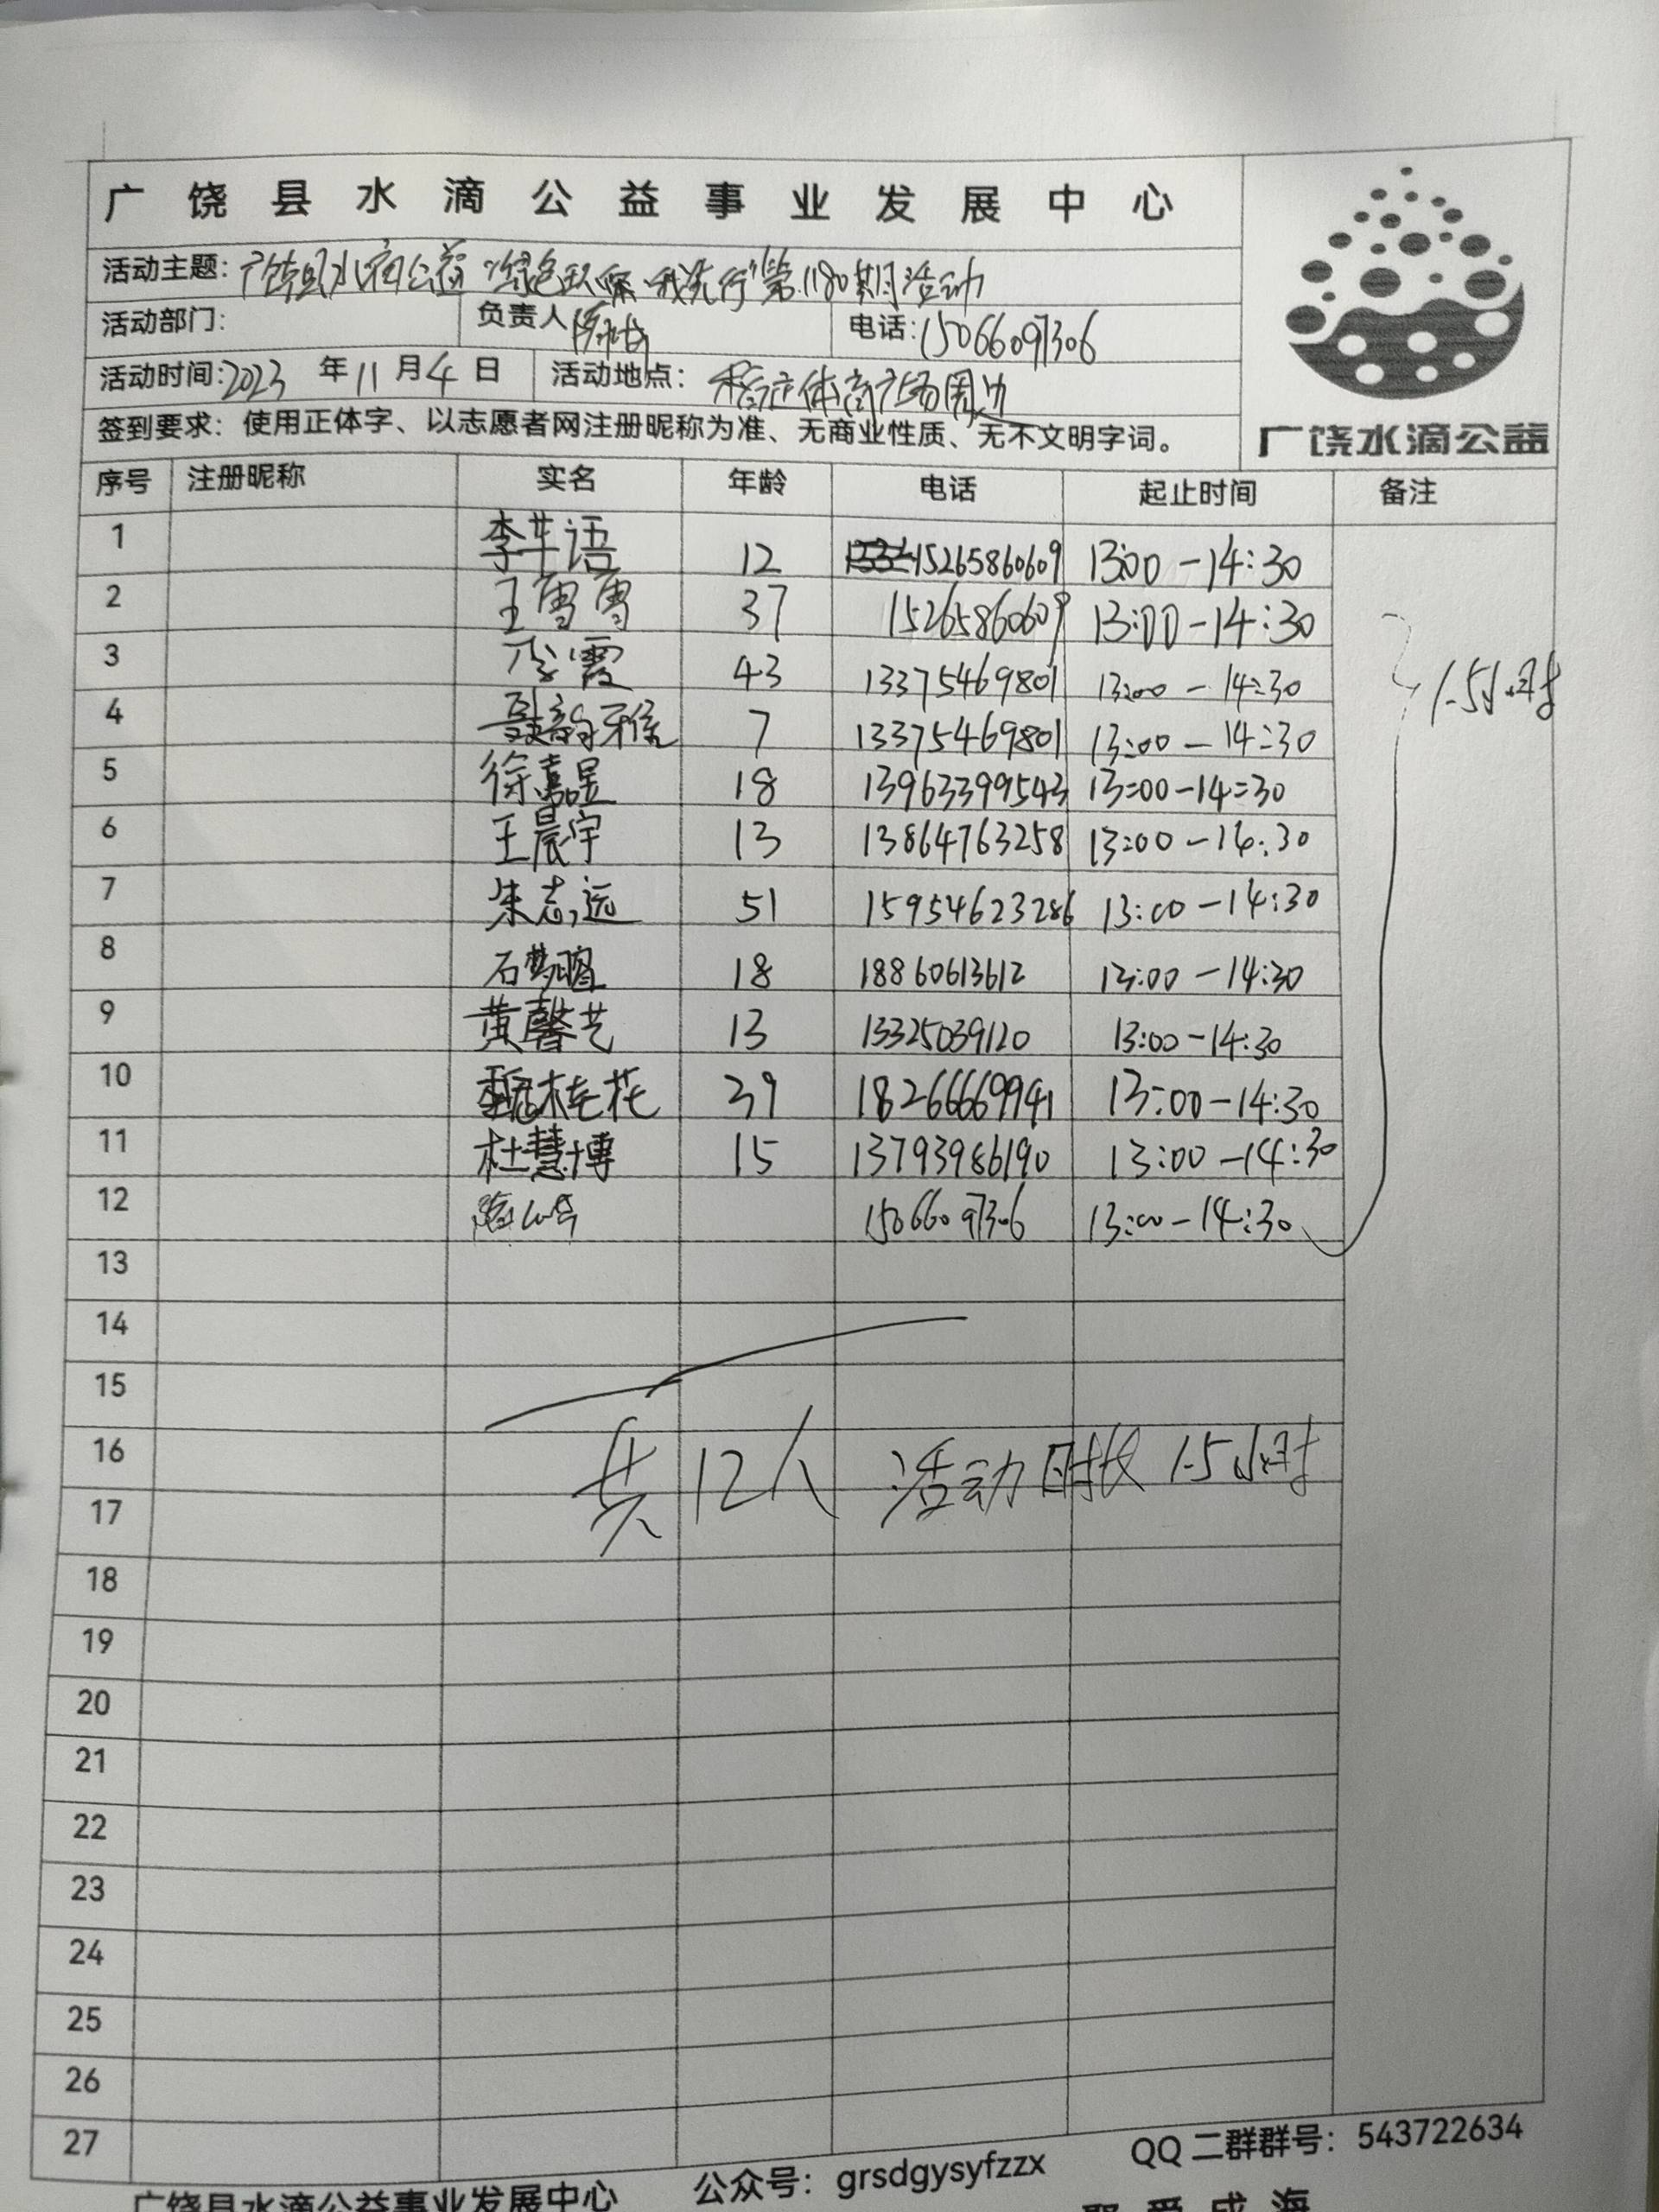 广饶县水滴公益事业发展中心
活动主题：广饶县水滴公益"绿色环保·我先行"第1180期活动
活动部门： 负责人 电话：15066097306
活动时间：2023年11月4日 活动地点：体育广场周边
签到要求：使用正体字、以志愿者网注册昵称为准、无商业性质、无不文明字词。
广饶水滴公益
序号 注册昵称 实名 年龄 电话 起止时间 备注
1 李芊语 12 15265860609 13:00-14:30
2 王雪雪 37 15265860609 13:00-14:30
3 李霞 43 13375469801 13:00-14:30
1.5小时
4 7 13375469801 13:00-14:30
5 徐嘉昱 18 13963399543 13:00-14:30
6 王晨宇 13 13864763258 13:00-14:30
7 朱志远 51 15954623286 13:00-14:30
8 石梦 18 18860613612 13:00-14:30
9 黄馨艺 13 13325039120 13:00-14:30
10 魏桂花 39 18266669941 13:00-14:30
11 杜慧博 15 13793986190 13:00-14:30
12 15066097306 13:00-14:30
13
14
15
16
共12人 活动时长1.5小时
17
18
19
20
21
22
23
24
25
26
27
广饶县水滴公益事业发展中心 公众号：grsdgysyfzzx QQ二群群号：543722634
聚爱成海